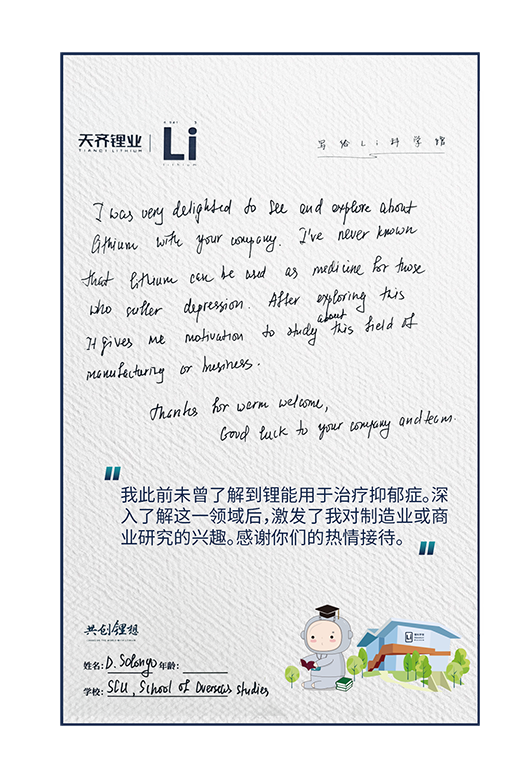 天齐锂业 Li
TIANQI LITHIUM LITHIUM
写给Li科学馆
I was very delighted to see and explore about
lithium with your company. I've never known
that lithium can be used as medicine for those
who suffer depression. After exploring this
It gives me motivation to study about this field of
manufacturing or business.
Thanks for warm welcome,
Good luck to your company and team.
我此前未曾了解到锂能用于治疗抑郁症。深
入了解这一领域后,激发了我对制造业或商
业研究的兴趣。感谢你们的热情接待。
共创锂想
姓名: D. Solongo 年龄:
学校: SCU, School of Overseas studies
Li